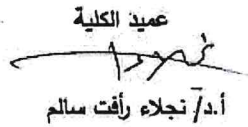 عميد الكلية
أ.د/ نجلاء رأفت سالم